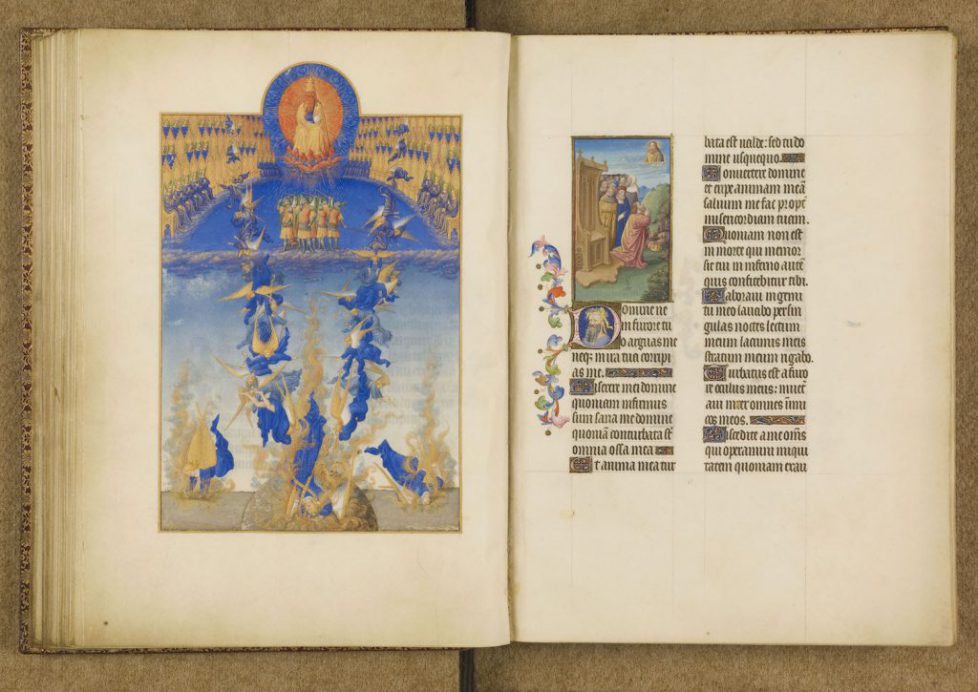 Domine ne
in furore tu
o arguas me
neq; in ira tua corripi
as me.
Miserere mei domine
quoniam infirmus
sum sana me domine
quoniã conturbata sũt
omnia ossa mea
Et anima mea tur
bata est valde: sed tu do
mine usquequo.
Convertere domine
et eripe animam meã
salvum me fac propt̾
misericordiam tuam.
Quoniam non est
in morte qui memor
sit tui in inferno autẽ
quis confitebitur tibi.
Laboravi in gemi
tu meo lavabo per sin
gulas noctes lectum
meum lacrimis meis
stratum meum rigabo.
Turbatus est a furo
re oculus meus: invet̾
avi inter omnes inimi
cos meos.
Discedite a me om̃s
qui operamini iniqui
tatem quoniam exau